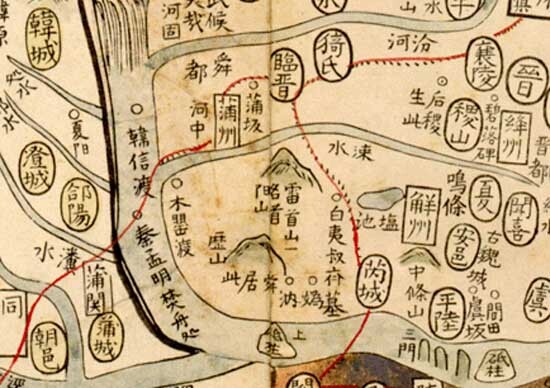 韓城
韓原
河固
哉
氏候
舜都
河中
蒲州
蒲坂
臨晉
猗氏
汾河
襄陵
晉
后稷生此
稷山
碧落碑
絳州
涑水
夏陽
澄城
郃陽
韓信渡
木罌渡
秦孟明焚舟処
水
蒲関
蒲城
朝邑
同
雷首山一略首山
歷山
舜居此
媯
汭
白夷叔齊墓
塩池
解州
鳴條
夏
聞喜
安邑
古魏城
虞坂
間田
虞
中條山
平陸
芮城
三門
砥柱
上
砥柱